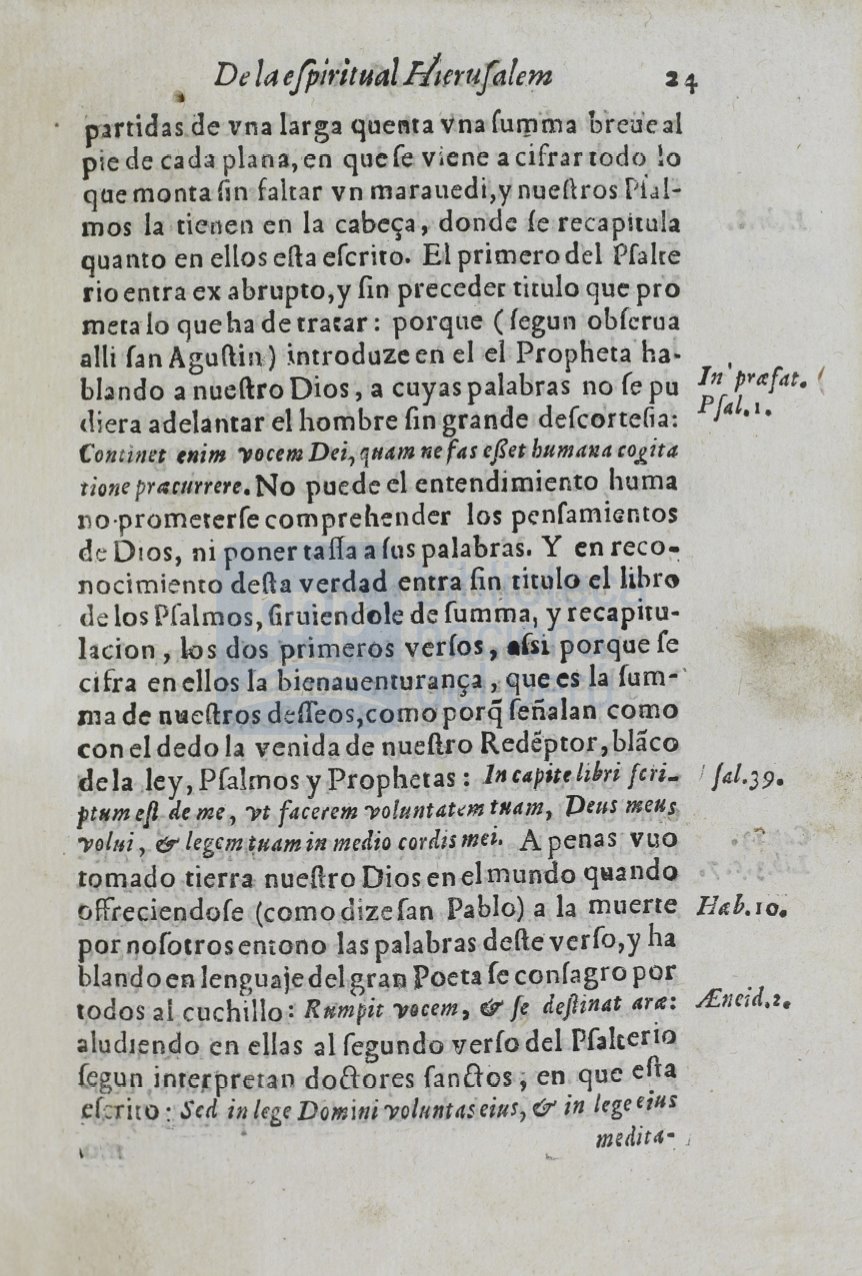 De la eſpiritual Hieruſalem 24
partidas de vna larga quenta vna ſumma breue al
pie de cada plana, en que ſe viene a cifrar todo lo
que monta ſin faltar vn marauedi, y nueſtros Pſal-
mos la tienen en la cabeça, donde ſe recapitula
quanto en ellos eſta eſcrito. El primero del Pſalte
rio entra ex abrupto, y ſin preceder titulo que pro
meta lo que ha de tratar: porque (ſegun obſerua
alli ſan Aguſtin) introduze en el el Propheta ha-
blando a nueſtro Dios, a cuyas palabras no ſe pu
In præfat.
Pſal. 1.
diera adelantar el hombre ſin grande deſcorteſia:
Continet enim vocem Dei, quam nefas eſſet humana cogita
tione præcurrere. No puede el entendimiento huma
no prometerſe comprehender los penſamientos
de Dios, ni poner taſſa a ſus palabras. Y en reco-
nocimiento deſta verdad entra ſin titulo el libro
de los Pſalmos, ſiruiendole de ſumma, y recapitu-
lacion, los dos primeros verſos, aſsi porque ſe
cifra en ellos la bienauenturança, que es la ſum-
ma de nueſtros deſſeos, como porq̃ ſeñalan como
con el dedo la venida de nueſtro Redẽptor, blãco
de la ley, Pſalmos y Prophetas: In capite libri ſcri-
ſal. 39.
ptum eſt de me, vt facerem voluntatem tuam, Deus meus
volui, & legem tuam in medio cordis mei. A penas vuo
tomado tierra nueſtro Dios en el mundo quando
offreciendoſe (como dize ſan Pablo) a la muerte
Hab. 10.
por noſotros entono las palabras deſte verſo, y ha
blando en lenguaje del gran Poeta ſe conſagro por
todos al cuchillo: Rumpit vocem, & ſe deſtinat aræ:
Æneid. 2.
aludiendo en ellas al ſegundo verſo del Pſalterio
ſegun interpretan doctores ſanctos, en que eſta
eſcrito: Sed in lege Domini voluntas eius, & in lege eius
medita-